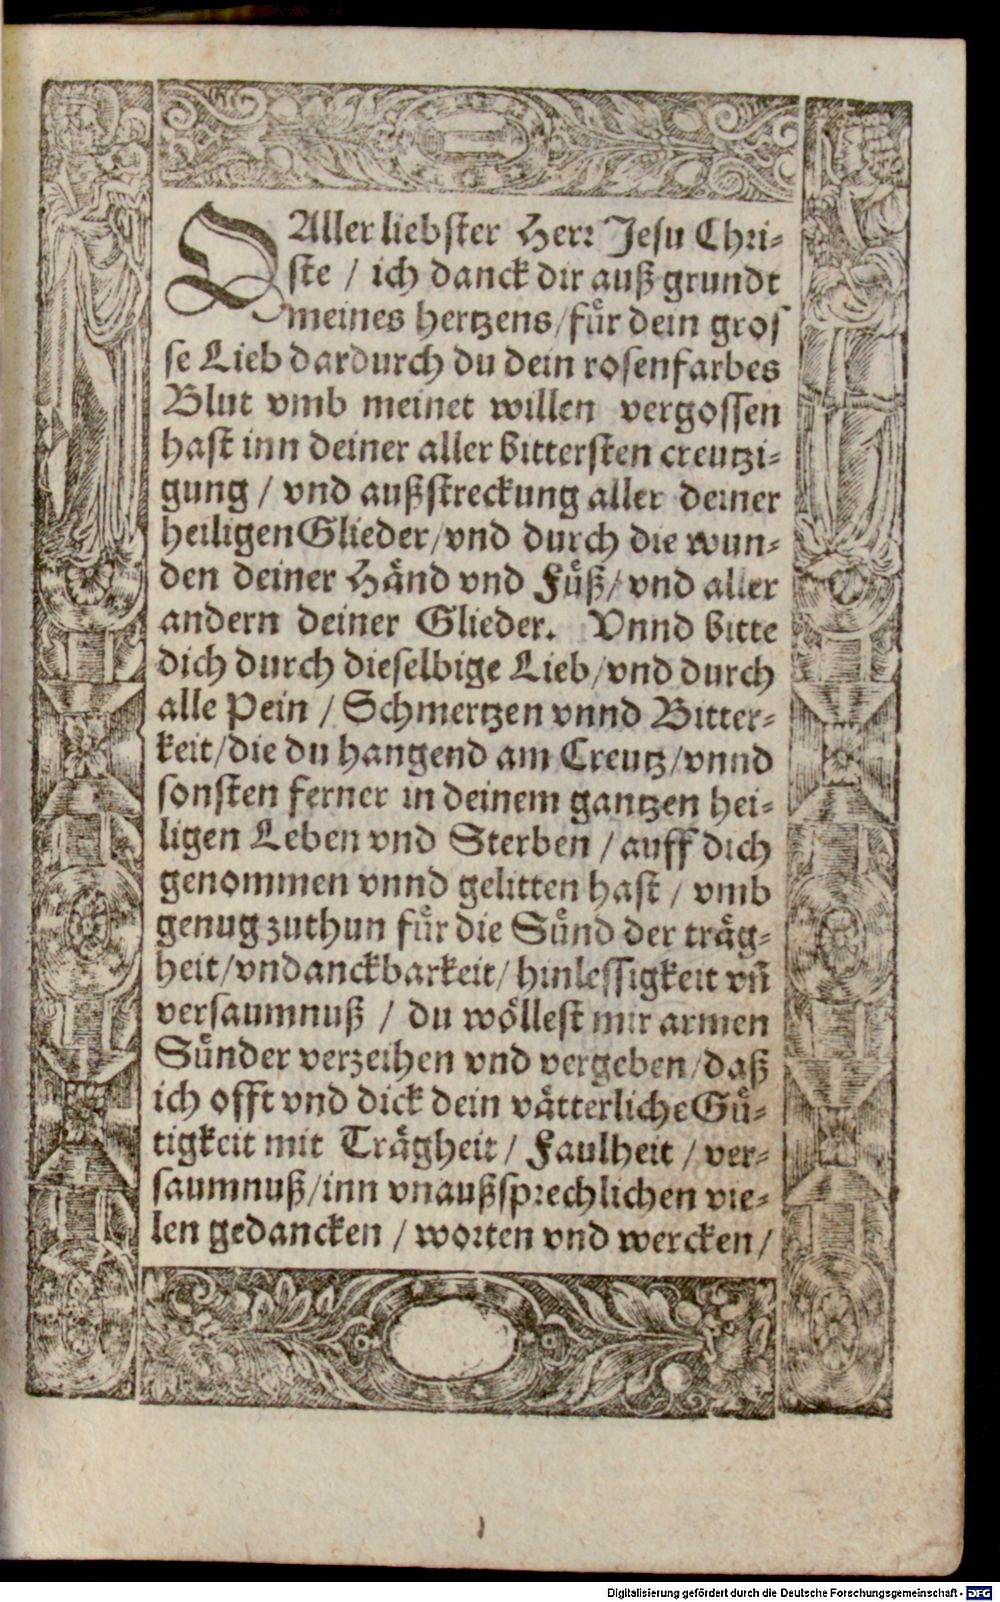 O Aller liebster Herr Jesu Chri⸗
ste / ich danck dir auß grundt
meines hertzens / fuͤr dein gros
se Lieb dardurch du dein rosenfarbes
Blut vmb meinet willen vergossen
hast inn deiner aller bittersten creutzi⸗
gung / vnd außstreckung aller deiner
heiligen Glieder / vnd durch die wun⸗
den deiner Haͤnd vnd Fuͤß / vnd aller
andern deiner Glieder. Vnnd bitte
dich durch dieselbige Lieb / vnd durch
alle Pein / Schmertzen vnnd Bitter⸗
keit / die du hangend am Creutz / vnnd
sonsten ferner in deinem gantzen hei⸗
ligen Leben vnd Sterben / auff dich
genommen vnnd gelitten hast / vmb
genug zuthun fuͤr die Suͤnd der traͤg⸗
heit / vndanckbarkeit / hinlessigkeit vn̄
versaumnuß / du woͤllest mir armen
Suͤnder verzeihen vnd vergeben / daß
ich offt vnd dick dein vaͤtterliche Guͤ⸗
tigkeit mit Traͤgheit / Faulheit / ver⸗
saumnuß / inn vnaußsprechlichen vie⸗
len gedancken / worten vnd wercken /
Digitalisierung gefördert durch die Deutsche Forschungsgemeinschaft - DFG